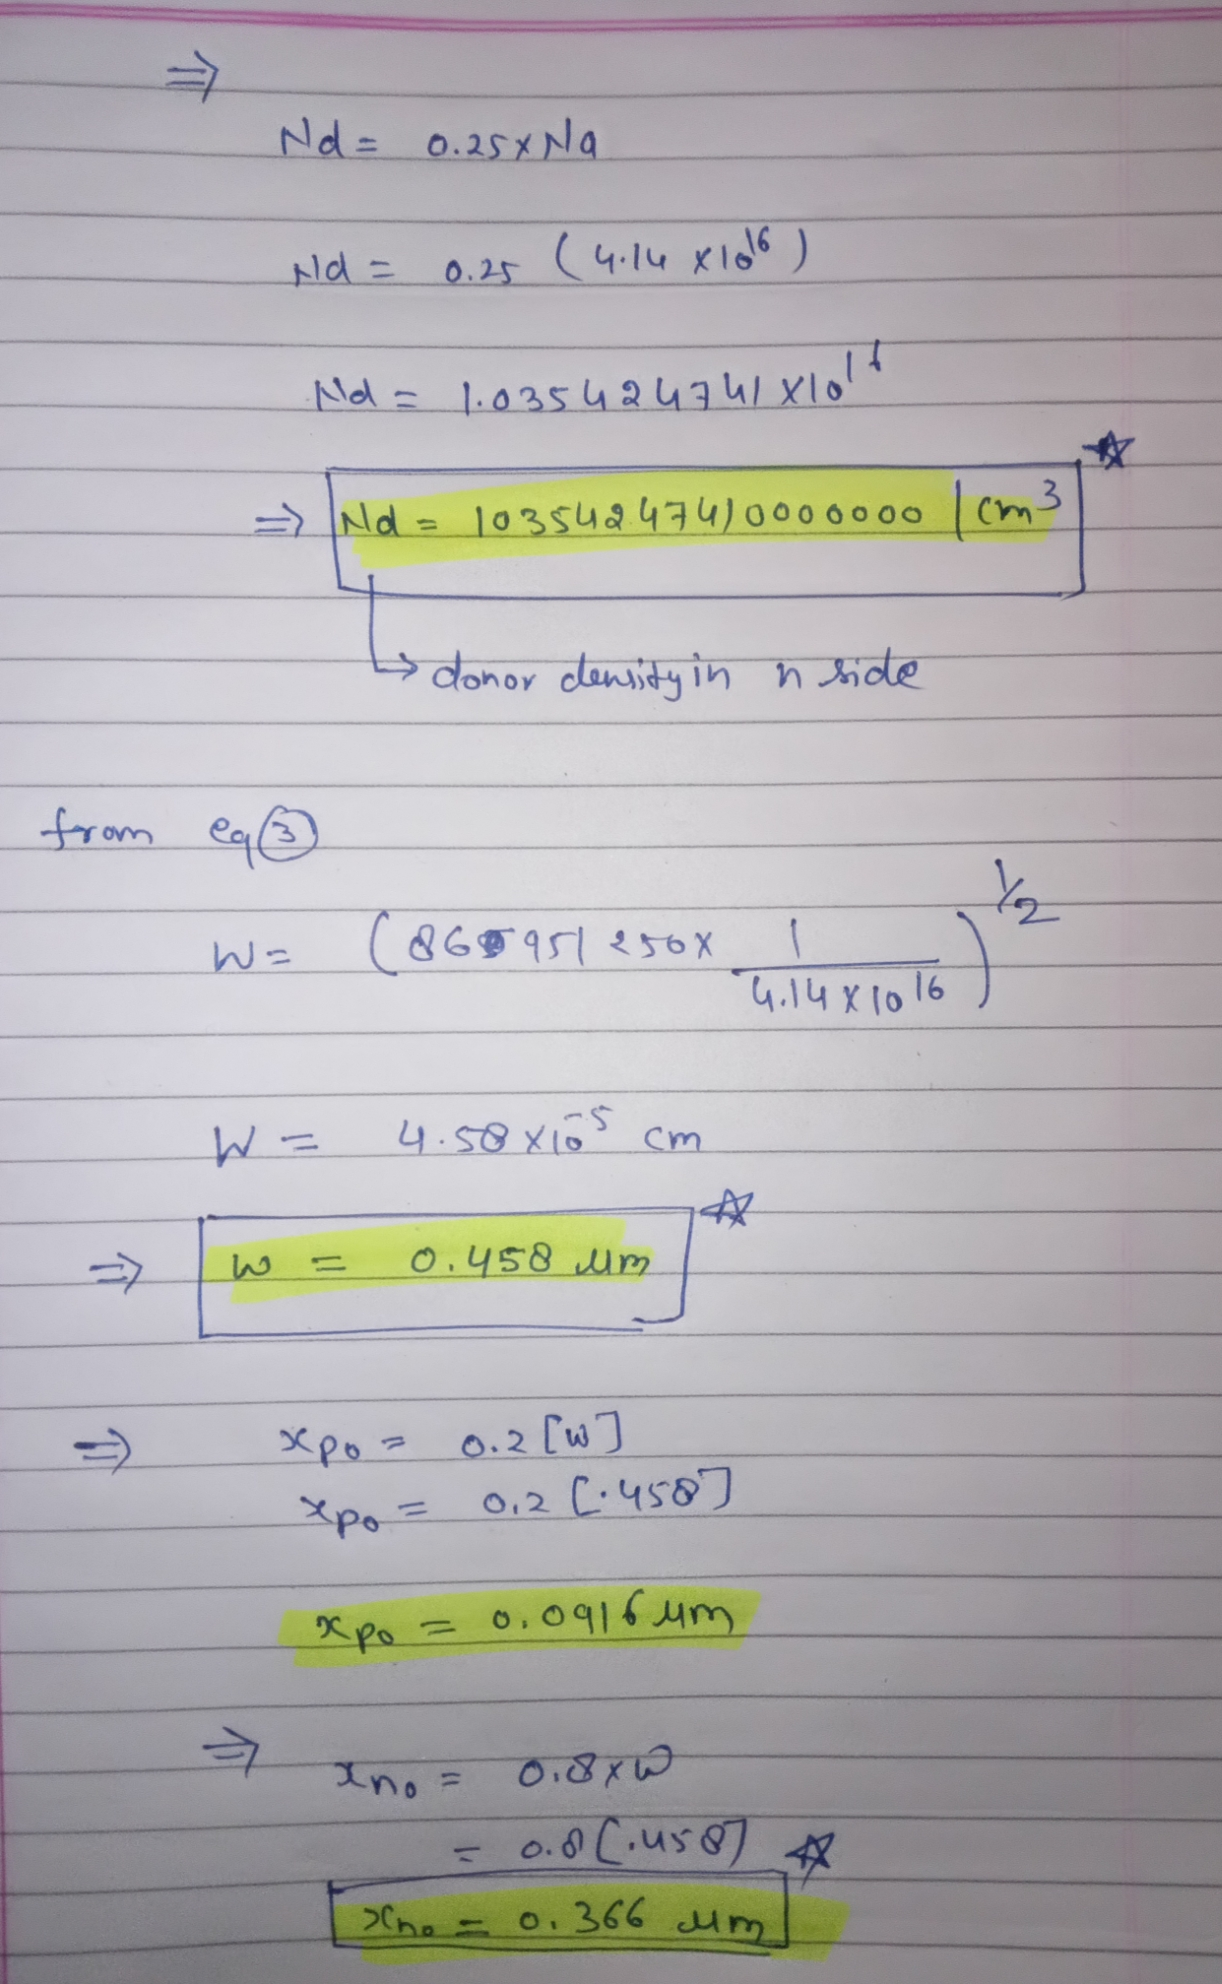 ⇒
Nd = 0.25 x Na
Nd = 0.25 ( 4.14 x 10^16 )
Nd = 1.035424741 x 10^16
⇒ Nd = 10354247410000000 / cm^3
↳ donor density in n side
from eq ③
W = ( 865951250 x 1 / 4.14 x 10^16 )^1/2
W = 4.58 x 10^-5 cm
⇒ W = 0.458 μm
⇒ xpo = 0.2 [W]
xpo = 0.2 [.458]
xpo = 0.0916 μm
⇒ xno = 0.8 x W
= 0.8 [.458]
xno = 0.366 μm